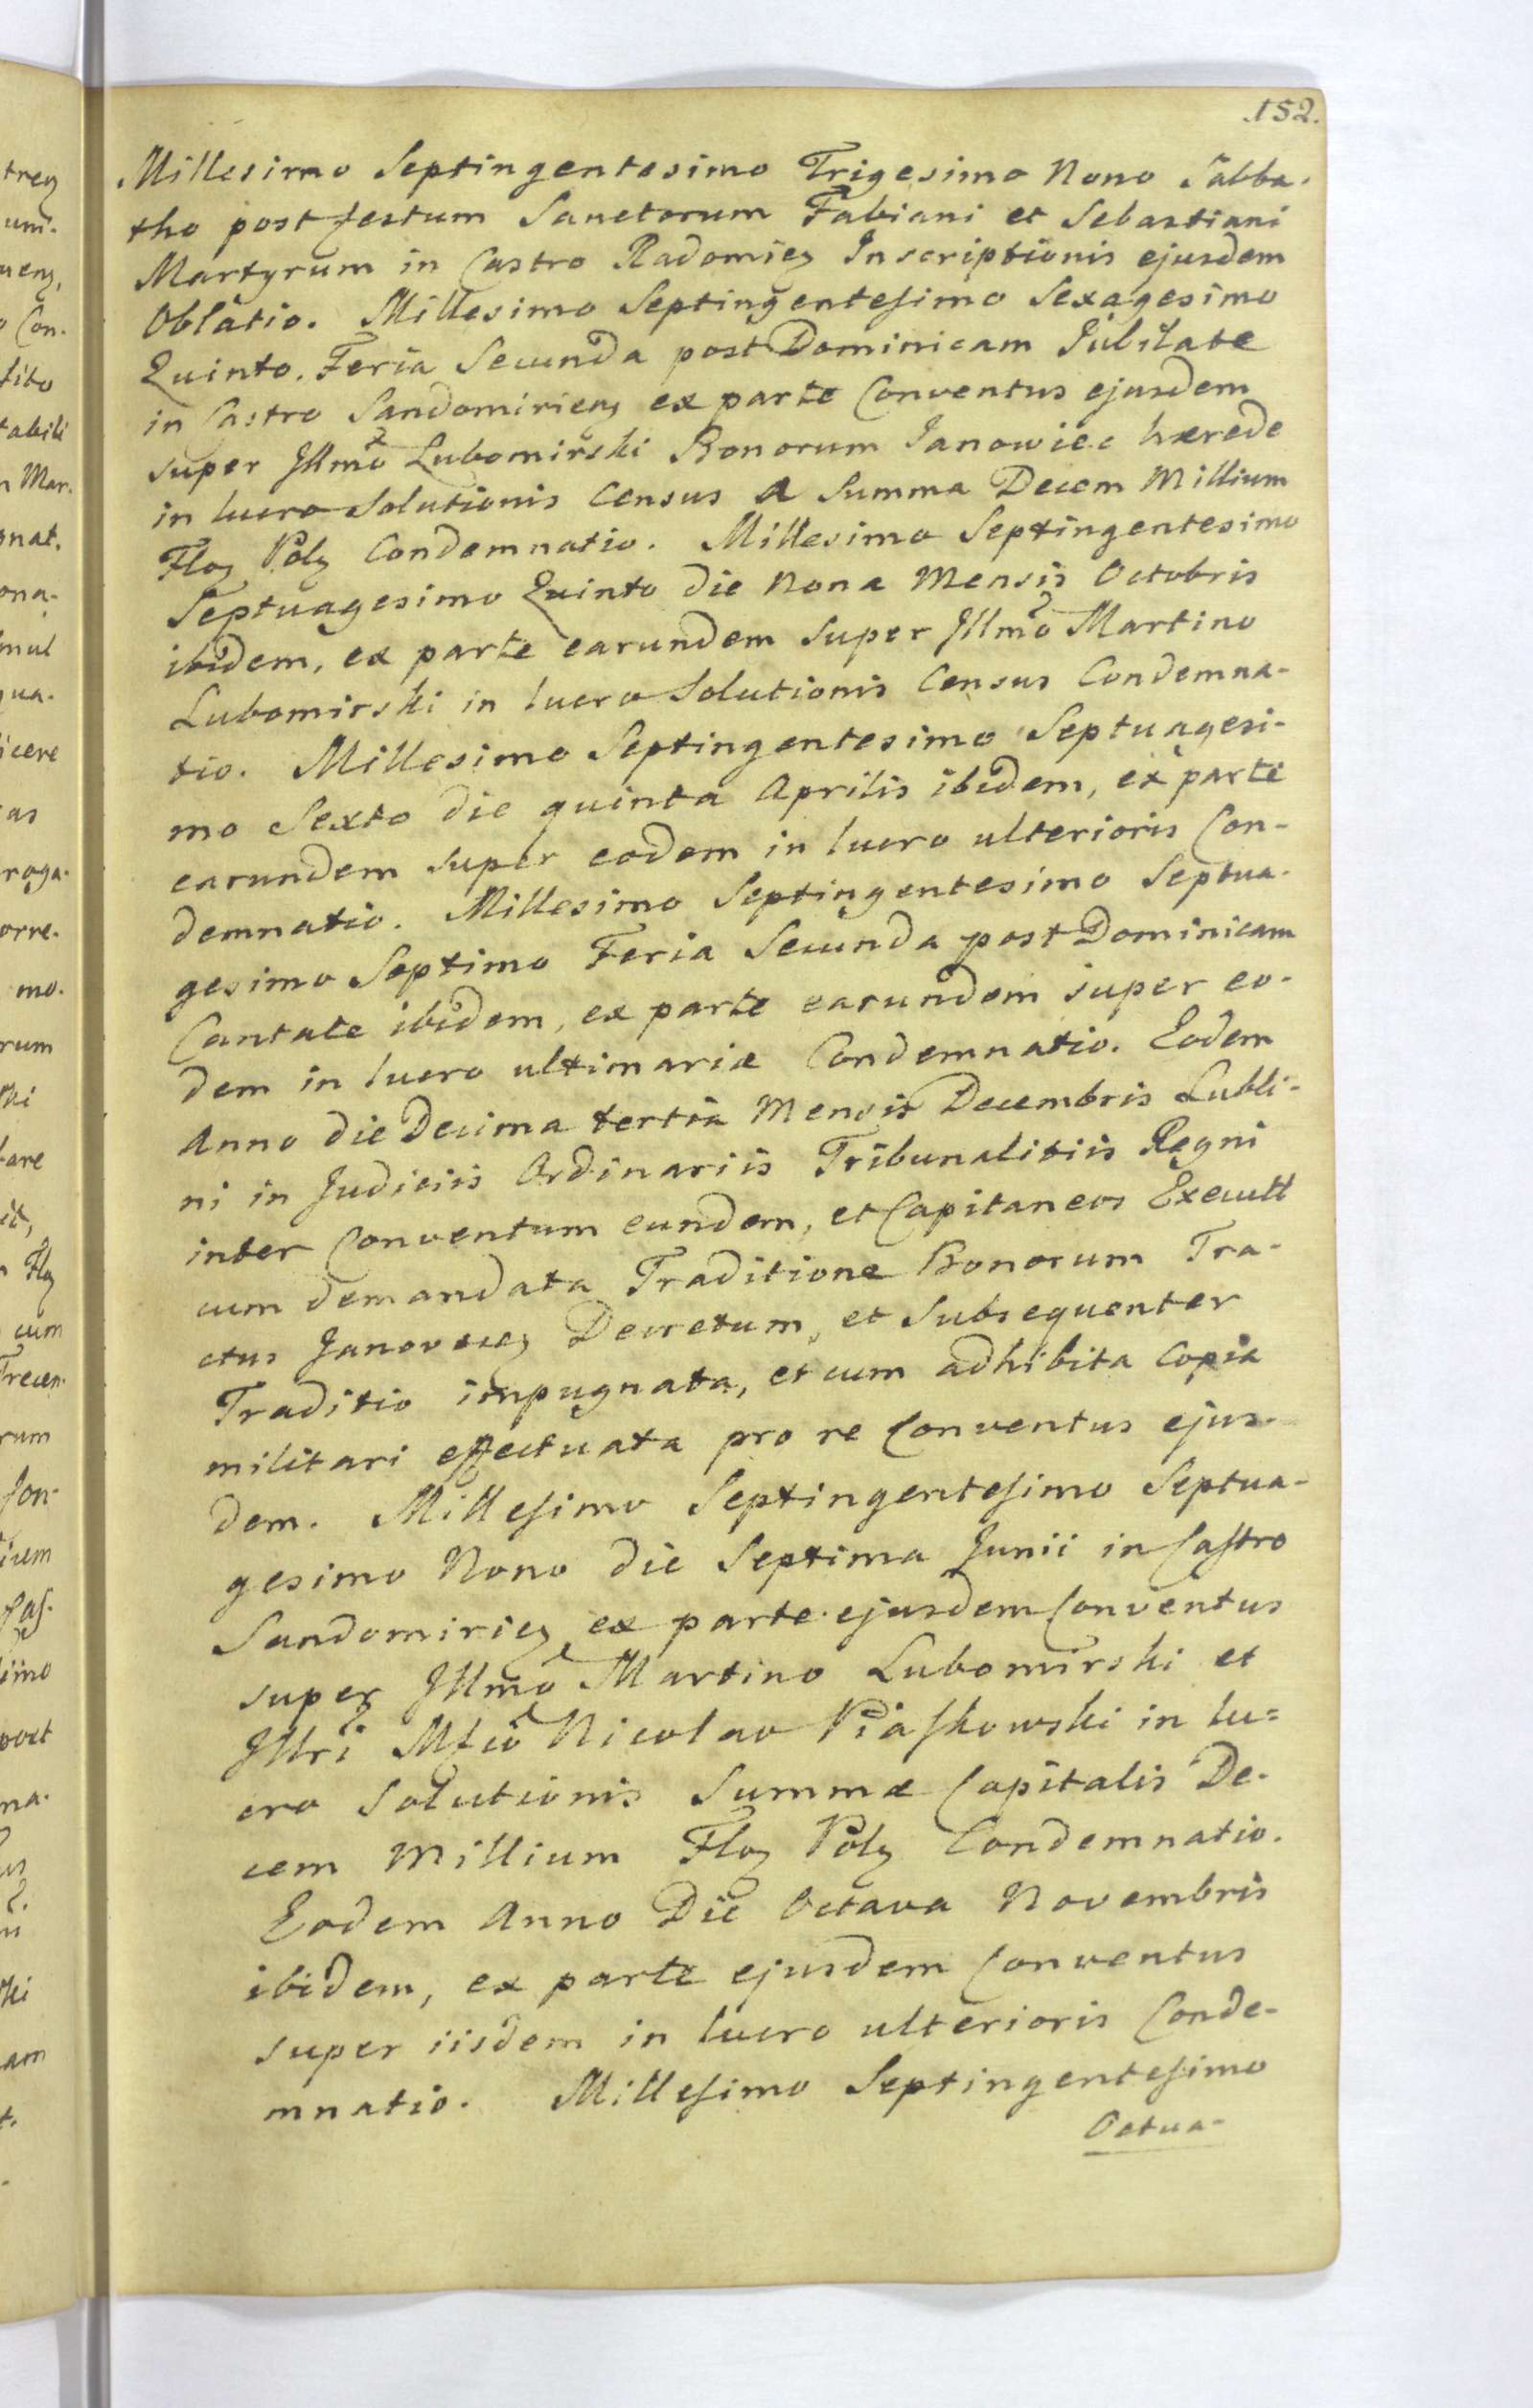 152.
Millesimo Septingentesimo Trigesimo Nono Sabba-
tho post festum Sanctorum Fabiani et Sebastiani
Martyrum in Castro Radomieÿ Inscriptionis ejusdem
Oblatio. Millesimo Septingentesimo Sexagesimo
Quinto. Feria Secunda post Dominicam Jubilate
in Castro Sandomirieÿ ex parte Conventus ejusdem
super Illmo Lubomirski Bonorum Janowiec hærede
in lucro Solutionis Census a Summa Decem Millium
Floÿ Polÿ Condemnatio. Millesimo Septingentesimo
Septuagesimo Quinto die Nona Mensis Octobris
ibidem, ex parte earundem super Illmo Martino
Lubomirski in lucro Solutionis Census Condemna-
tio. Millesimo Septingentesimo Septuagesi-
mo Sexto die quinta Aprilis ibidem, ex parte
earundem super eodem in lucro ulterioris Con-
demnatio. Millesimo Septingentesimo Septua-
gesimo Septimo Feria Secunda post Dominicam
Cantate ibidem, ex parte earundem super eo-
dem in lucro ultimariæ Condemnatio. Eodem
Anno die Decima tertia Mensis Decembris Lubli-
ni in Judiciis Ordinariis Tribunalitiis Regni
inter Conventum eundem, et Capitaneos Executt
cum demandata Traditione Bonorum Tra-
ctus Janovecÿ Decretum, et Subsequenter
Traditio impugnata, et cum adhibita Copia
militari effectuata pro re Conventus ejus-
dem. Millesimo Septingentesimo Septua-
gesimo Nono die Septima Junii in Castro
Sandomirieÿ ex parte ejusdem Conventus
super Illmo Martino Lubomirski et
Illri Mfco Nicolao Piaskowski in lu=
cro Solutionis Summæ Capitalis De-
cem Millium Floÿ Polÿ Condemnatio.
Eodem Anno Die Octava Novembris
ibidem, ex parte ejusdem Conventus
super iisdem in lucro ulterioris Conde-
mnatio. Millesimo Septingentesimo
Octua-